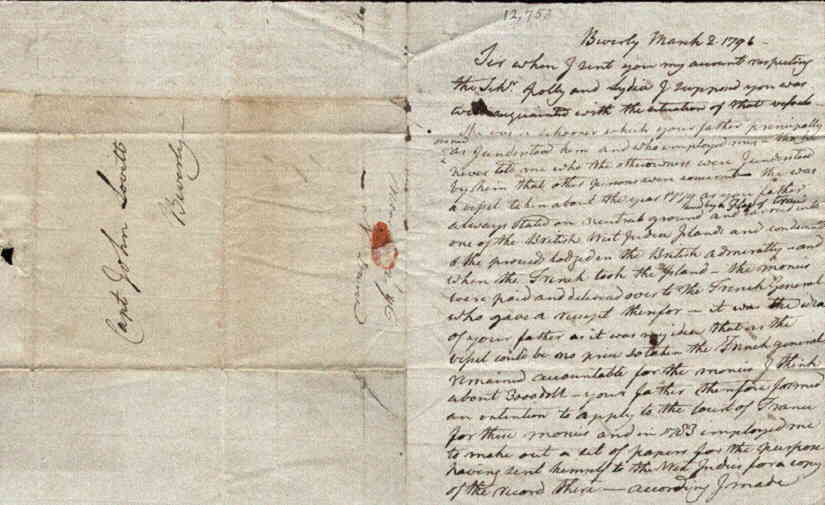 12,758
Capt John Lovitt
Beverly
Beverly March 2 1796
Sir when I sent you my account respecting
the Schr. Polly and Lydia I suppose you was
acquainted with the situation of that vessel
She was a schooner which your father principally
owned
as I understood him and who employed me
never told me who the other owners were I understood
by him that other persons were concerned she was
a vessel taken about the year 1779 as your father
always stated on neutral ground and carried into
one of the British West India Islands and condemned
& the proceed lodged in the British admiralty and
when the French took the Island – the monies
were paid and delivered over to the French General
who gave a receipt therefor – it was the idea
of your father as it was my idea that as the
vessel could be no prize so taken the French general
remained accountable for the monies I think
about – your father therefore formed
an intention to apply to the Court of France
for these monies and in 1783 employed me
to make out a set of papers for the purpose
having sent to the West Indies for a copy
of the record there – according I made